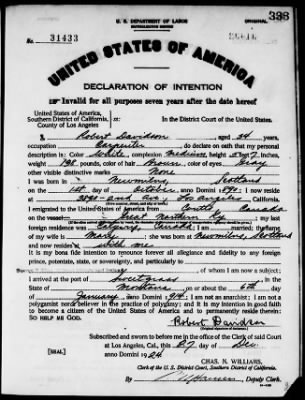 U. S. DEPARTMENT OF LABOR
NATURALIZATION SERVICE
ORIGINAL
338
No. 31433
UNITED STATES OF AMERICA
DECLARATION OF INTENTION
Invalid for all purposes seven years after the date hereof
United States of America,
Southern District of California,
County of Los Angeles
In the District Court of the United States.
I, Robert Davidson, aged 34 years,
occupation Carpenter, do declare on oath that my personal
description is: Color White, complexion medium, height 5 feet 7 inches,
weight 198 pounds, color of hair Brown, color of eyes Gray
other visible distinctive marks None
I was born in Newmilns, Scotland
on the 1st day of October, anno Domini 1890; I now reside
at Los Angeles, California.
I emigrated to the United States of America from Canada
on the vessel Great Northern Ry; my last
foreign residence was Calgary, Canada; I am married; the name
of my wife is; she was born at Newmilns, Scotland
and now resides at with me
It is my bona fide intention to renounce forever all allegiance and fidelity to any foreign
prince, potentate, state, or sovereignty, and particularly to
, of whom I am now a subject;
I arrived at the port of Sweetgrass, in the
State of Montana, on or about the 6th day
of January, anno Domini 1914; I am not an anarchist; I am not a
polygamist nor a believer in the practice of polygamy; and it is my intention in good faith
to become a citizen of the United States of America and to permanently reside therein:
SO HELP ME GOD.
Robert Davidson
(Original signature of declarant.)
Subscribed and sworn to before me in the office of the Clerk of said Court
at Los Angeles, Cal., this 27 day of Dec
[SEAL] anno Domini 1924
CHAS. N. WILLIAMS,
Clerk of the U. S. District Court, Southern District of California.
By, Deputy Clerk.